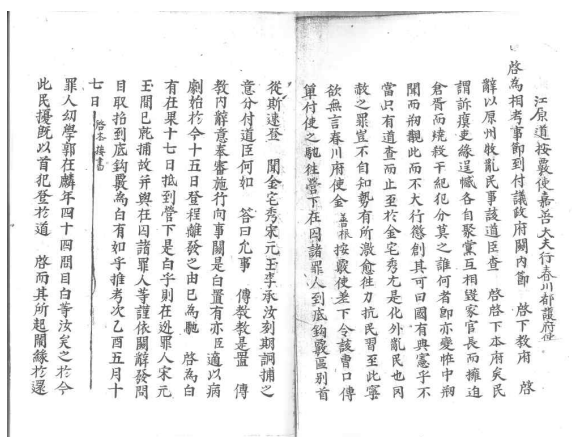 江原道按覈使嘉善大夫行春川都護府使
啓為相考事節到付議政府關內節 啓下教府 啓
辭以原州收亂民事該道臣查 啓 啓下本府矣民
謂訴瘼吏緣逞憾各自聚黨互相毀家官長而擁迫
倉胥而燒殺干紀犯分莫之誰何者卽亦變恠中刱
聞而刱覩此而不大行懲創其可曰國有典憲乎不
當只有道查而止至於金宅秀尤是化外亂民也罔
赦之罪豈不自知勢有所激愈往力抗民習至此寧
欲無言春川府使金善根按覈使差下令該曹口傳
單付使之馳往營下在囚諸罪人到底鉤覈區別首
從斯速登 聞金宅秀宋元玉李承汝刻期詗捕之
意分付道臣何如 答曰允事 傳教教是置 傳
教內辭意奉審施行向事關是白置有亦臣適以病
劇始於今十五日登程離發之由已為馳 啓為白
有在果十七日抵到營下是白乎則在逃罪人宋元
玉間已就捕故幷與在囚諸罪人等謹依關辭發問
目取招到底鉤覈為白有如乎推考次乙酉五月十
七日 啓本接書
罪人幼學郭在麟年四十四問目白等汝矣之於今
此民擾旣以首犯登於道 啓而其所起鬧緣於還